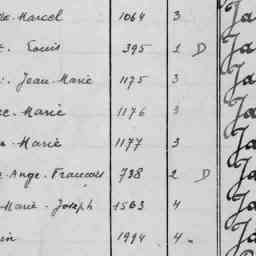 Marcel 1064 3 Ja
Louis 395 2 D Ja
Jean-Marie 1175 3 Ja
Marie 1176 3 Ja
Marie 1177 3 Ja
Ange-Francois 738 2 D Ja
Marie-Joseph 1563 4 Ja
1994 4 Ja